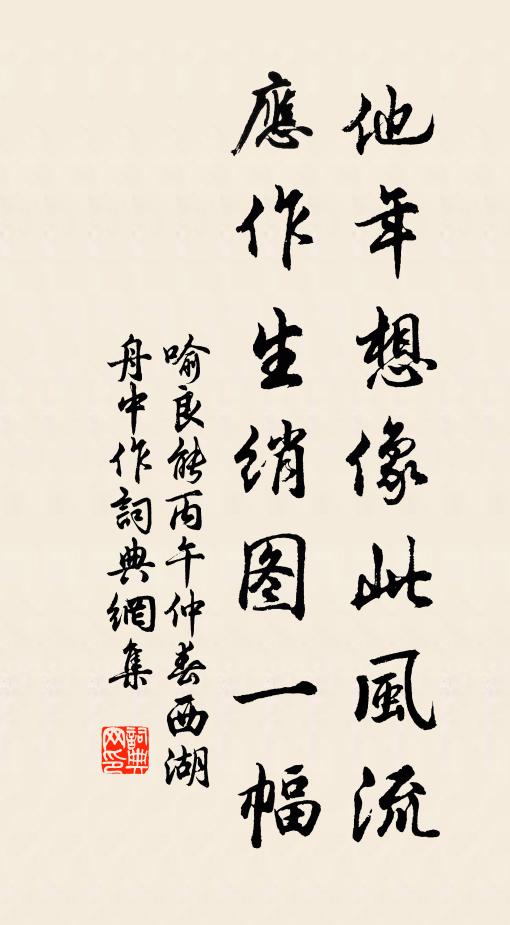 他年想像此風流
應作生绡图一幅
喻良能丙午仲春西湖
舟中作詞典網集
詞典网印